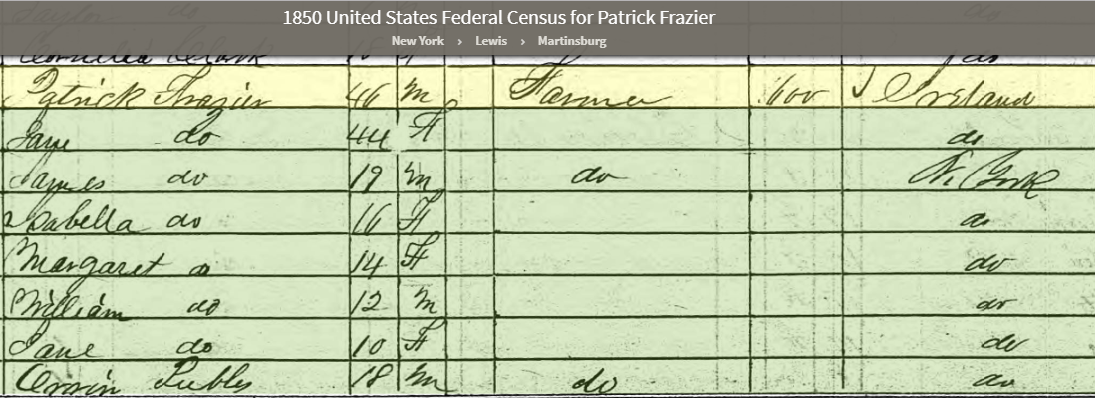 1850 United States Federal Census for Patrick Frazier
New York › Lewis › Martinsburg
Cornelia Clark 18 F do
Patrick Frazier 46 m Farmer 600 Ireland
Jane do 44 F do
James do 19 m do N. York
Isabella do 16 F do
Margaret do 14 F do
William do 12 m do
Jane do 10 F do
Orrin 18 m do do